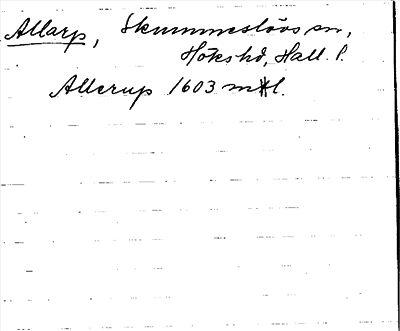 Allarp, Skummeslövs sn,
Höks hd, Hall. l.
Allerup 1603 mtl.